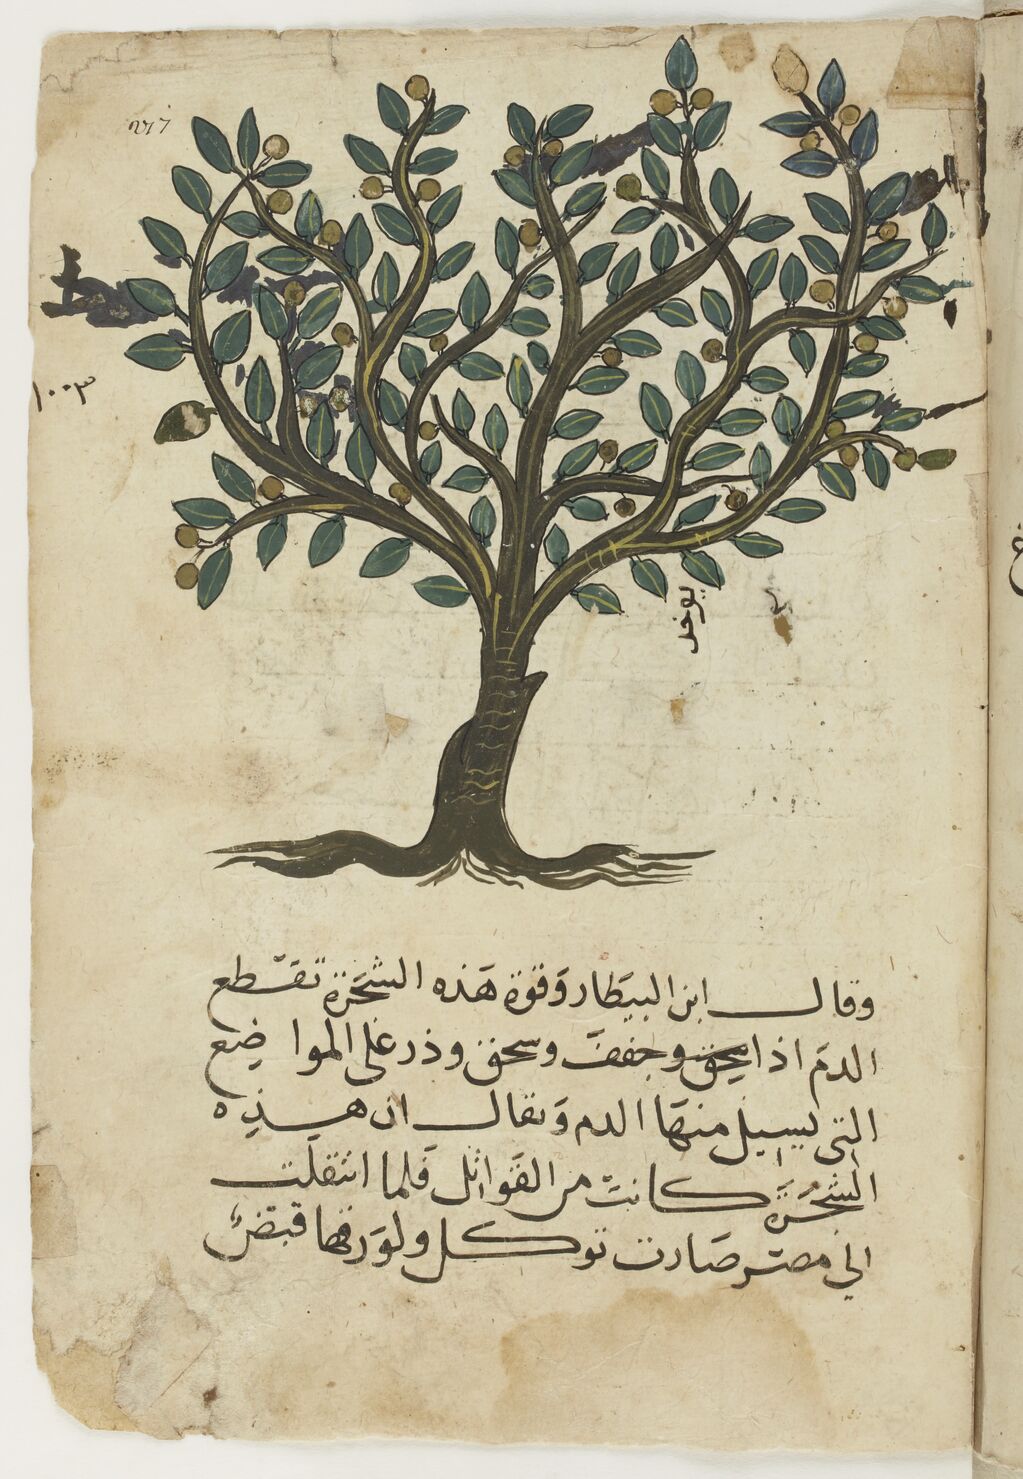 217
١٠٠٣
يوخذ
وقال ابن البيطار وقوة هذه الشجرة تقطع
الدم اذا سحق وجفف وسحق وذر على المواضع
التى يسيل منها الدم ويقال ان هذه
الشجرة كانت من القواتل فلما انتقلت
الى مصر صارت توكل ولورقها قبض